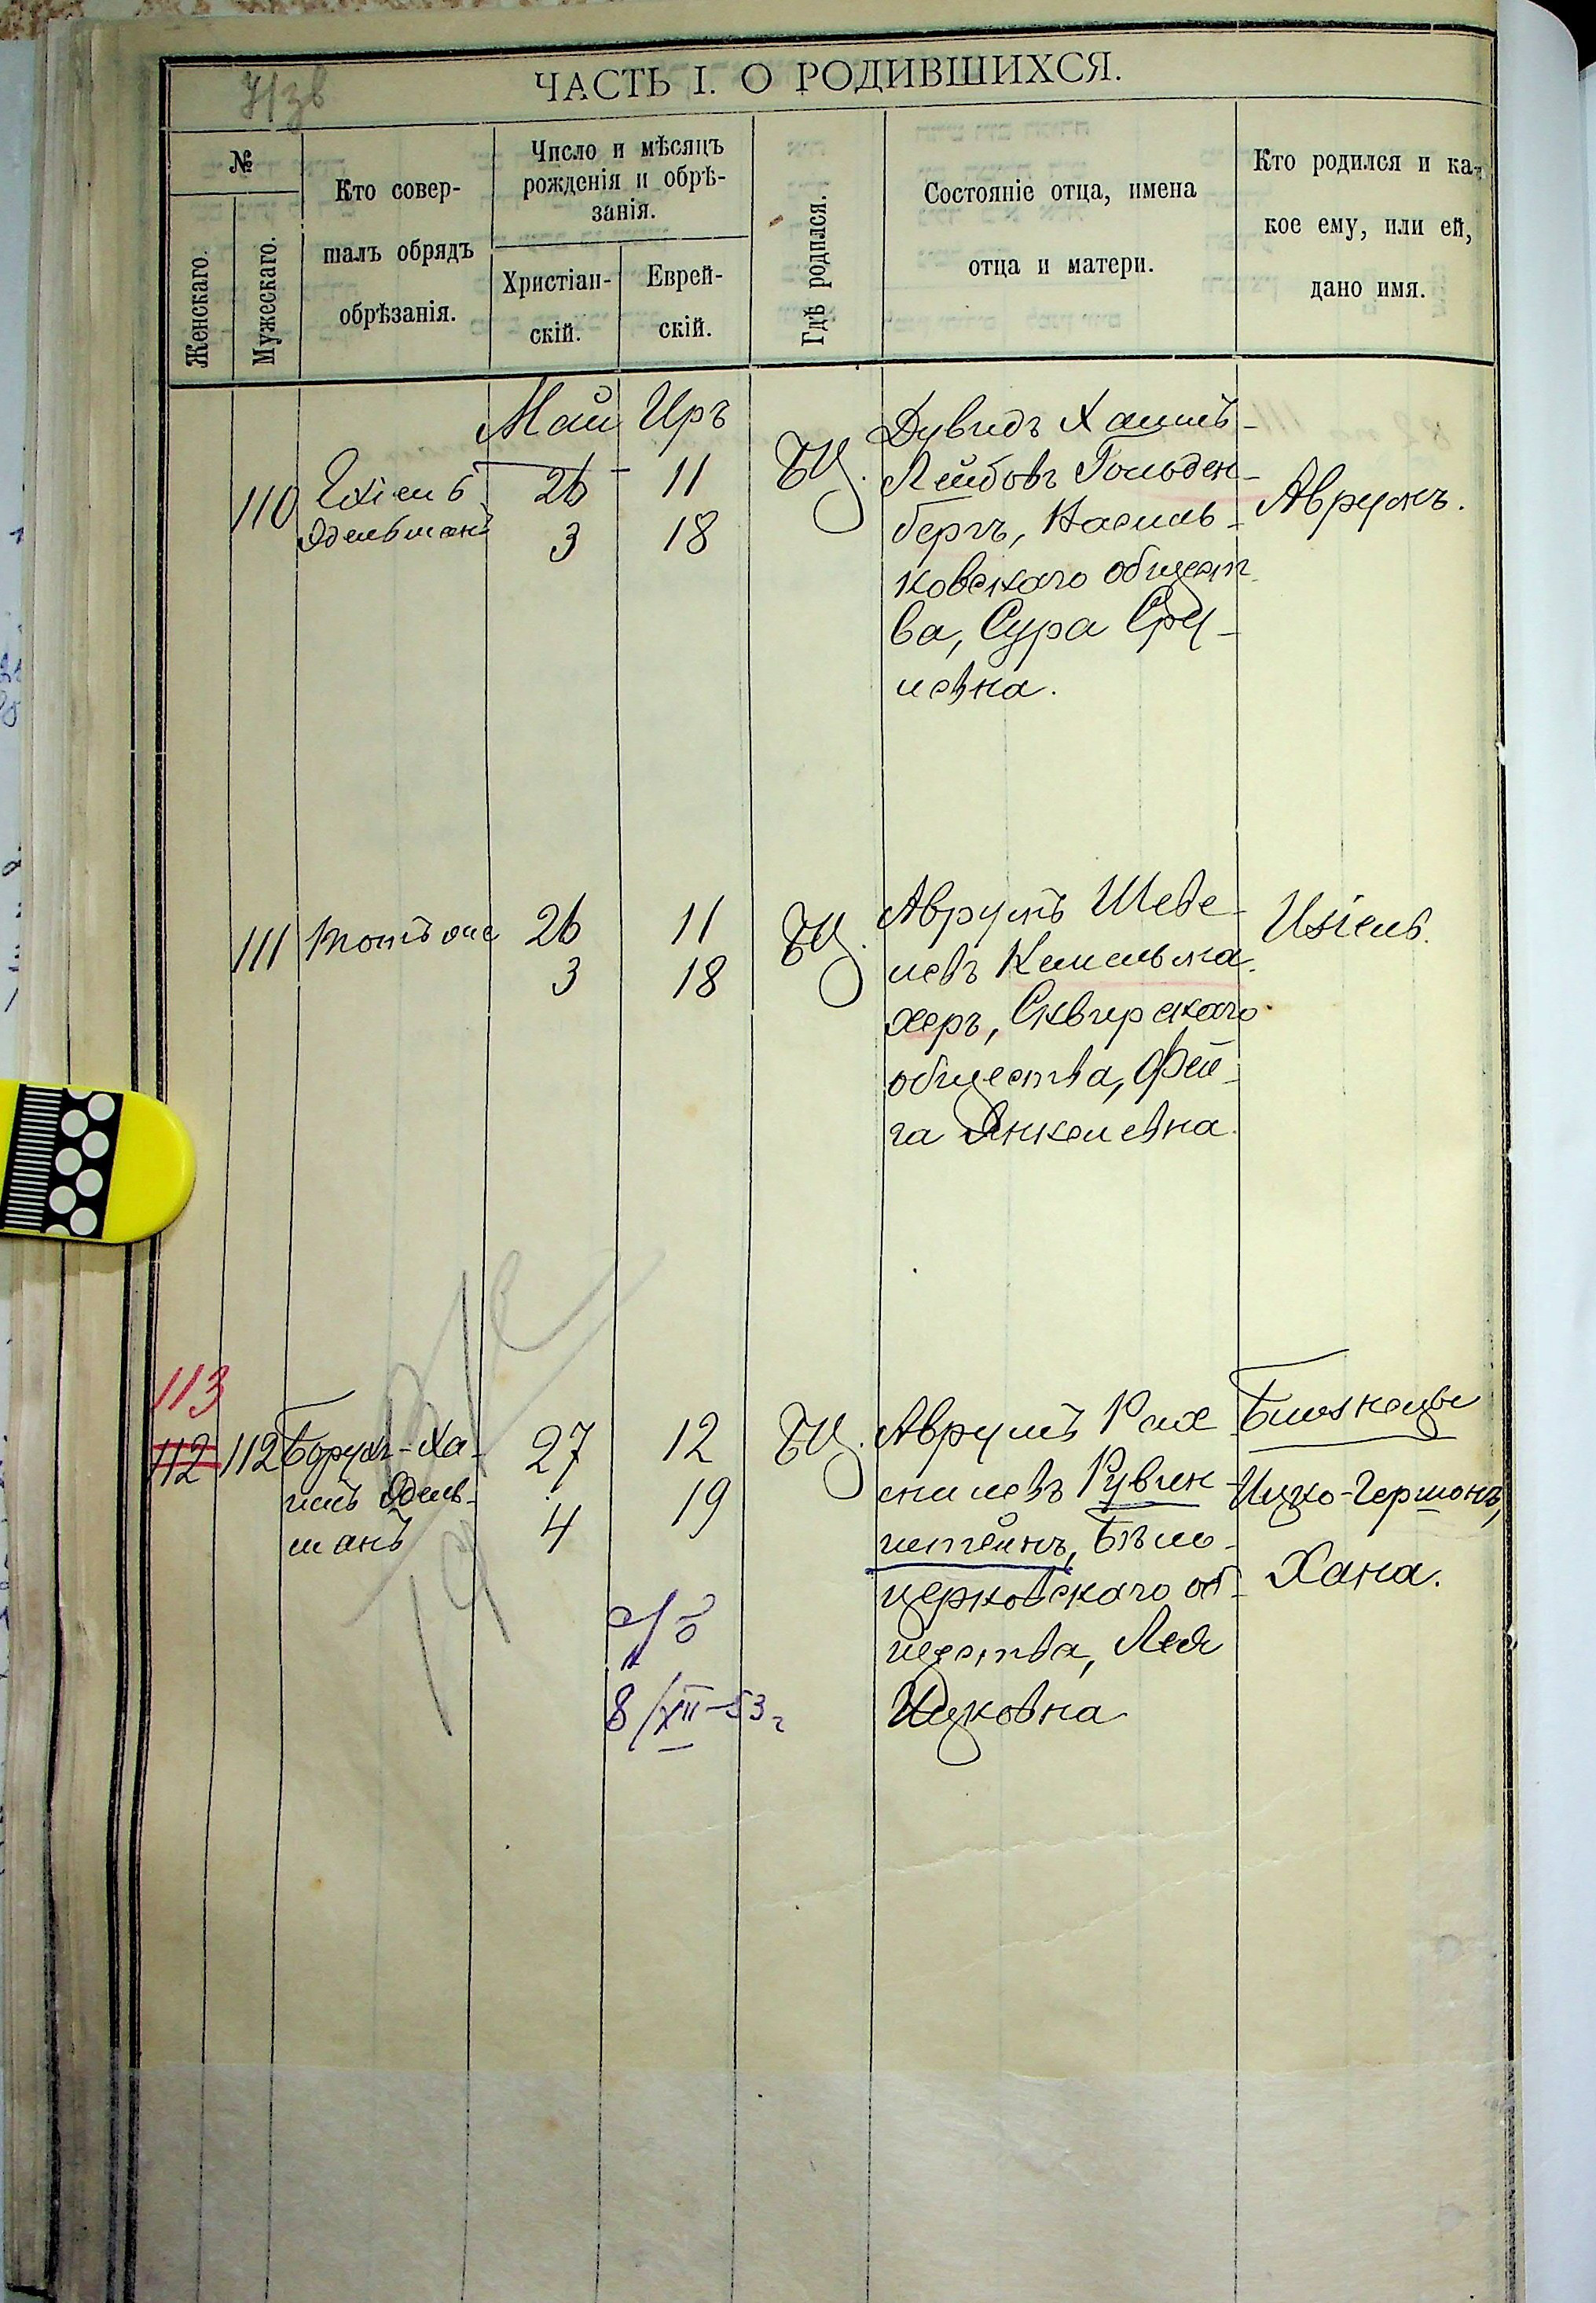 ЧАСТЬ I. О РОДИВШИХСЯ.
№
Женскаго.
Мужескаго.
Кто совер-
шалъ обрядъ
обрѣзанія.
Число и мѣсяцъ
рожденія и обрѣ-
занія.
Христіан-
скій.
Еврей-
скій.
Гдѣ родился.
Состояніе отца, имена
отца и матери.
Кто родился и ка-
кое ему, или ей,
дано имя.
Май Иръ
110
Эдельманъ
26 11
3 18
БЦ.
Дувидъ Хаимъ-
Лейбовъ Гольден-
бергъ, Василь-
ковскаго общест-
ва, Сура Сру-
левна.
Аврумъ.
111 Тотъ же
26 11
3 18
БЦ.
Аврумъ Шеве-
левъ Кесельма-
херъ, Сквирскаго
общества, Фей-
га Янкелевна.
Изіель.
113
112 112 Борухъ-Ха-
имъ Эдель-
манъ
27 12
4 19
БЦ.
Аврумъ Рах-
милевъ Рувин-
штейнъ, Бѣло-
церковскаго об-
щества, Лея
Ицковна
Близнецы
Ицко-Гершонъ,
Хана.
8/XII-53г